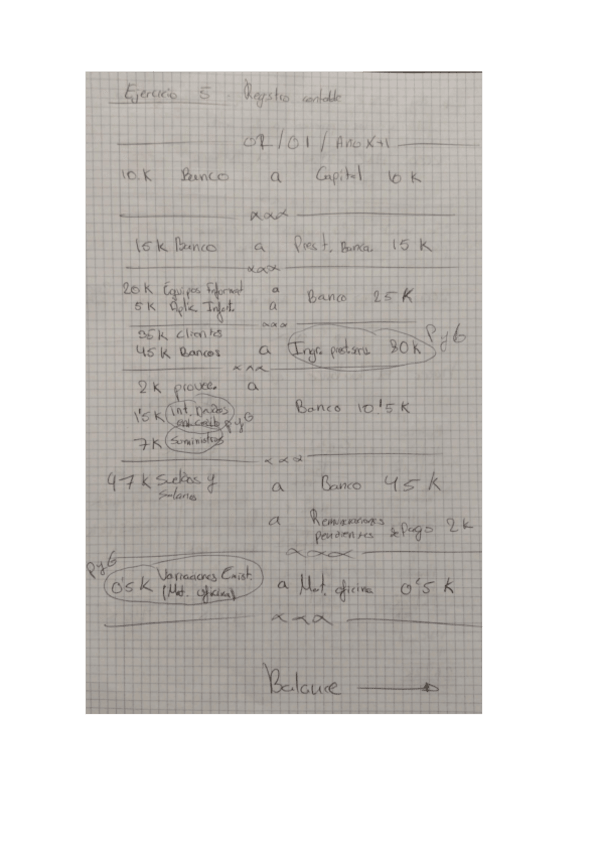 Ejercicio 5 Registro contable
02/01/Año X+1
10 K Banco a Capital 10 K
xxx
15 K Banco a Prest. Banca. 15 K
xxx
20 K Equipos Informat a
5 K Aplic. Infort. a Banco 25 K
xxx
35K Clientes
45K Bancos a Ingr. prestserv 80K PyG
xxx
2K provee. a
1'5K Int. PyG Banco 10'5 K
7K Suministros
xxx
47 K Sueldos y Salarios a Banco 45 K
a Remuneraciones pendientes de pago 2K
xxx
PyG
0'5 K Variaciones Exist. (Mat. oficina) a Mat. oficina 0'5 K
xxx
Balance →